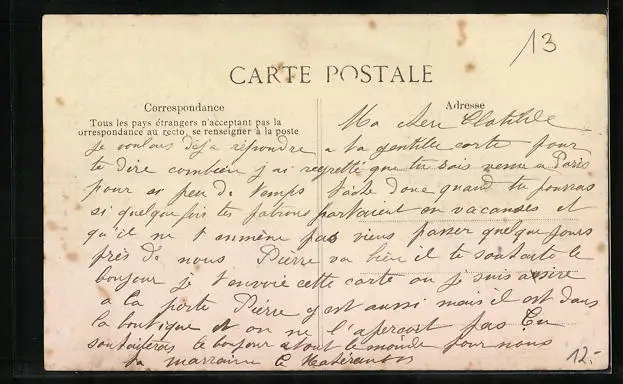 13
CARTE POSTALE
Correspondance
Adresse
Tous les pays étrangers n'acceptant pas la
orrespondance au recto, se renseigner à la poste
Ma chere Clotilde
je voulais déja répondre a ta gentille carte pour
te dire combien j'ai regretté que tu sois venue a Paris
pour si peu de temps tache donc quand tu pourras
si quelque fois tes patrons partaient en vacances et
qu'il ne t'emmène pas viens passer quelque jours
près de nous Pierre va bien il te souhaite le
bonjour je t'envoie cette carte ou je suis assise
a la porte Pierre y est aussi mais il est dans
la boutique et on ne l'apercoit pas Tu
souhaiteras le bonjour a tout le monde pour nous
ta marraine
12.-